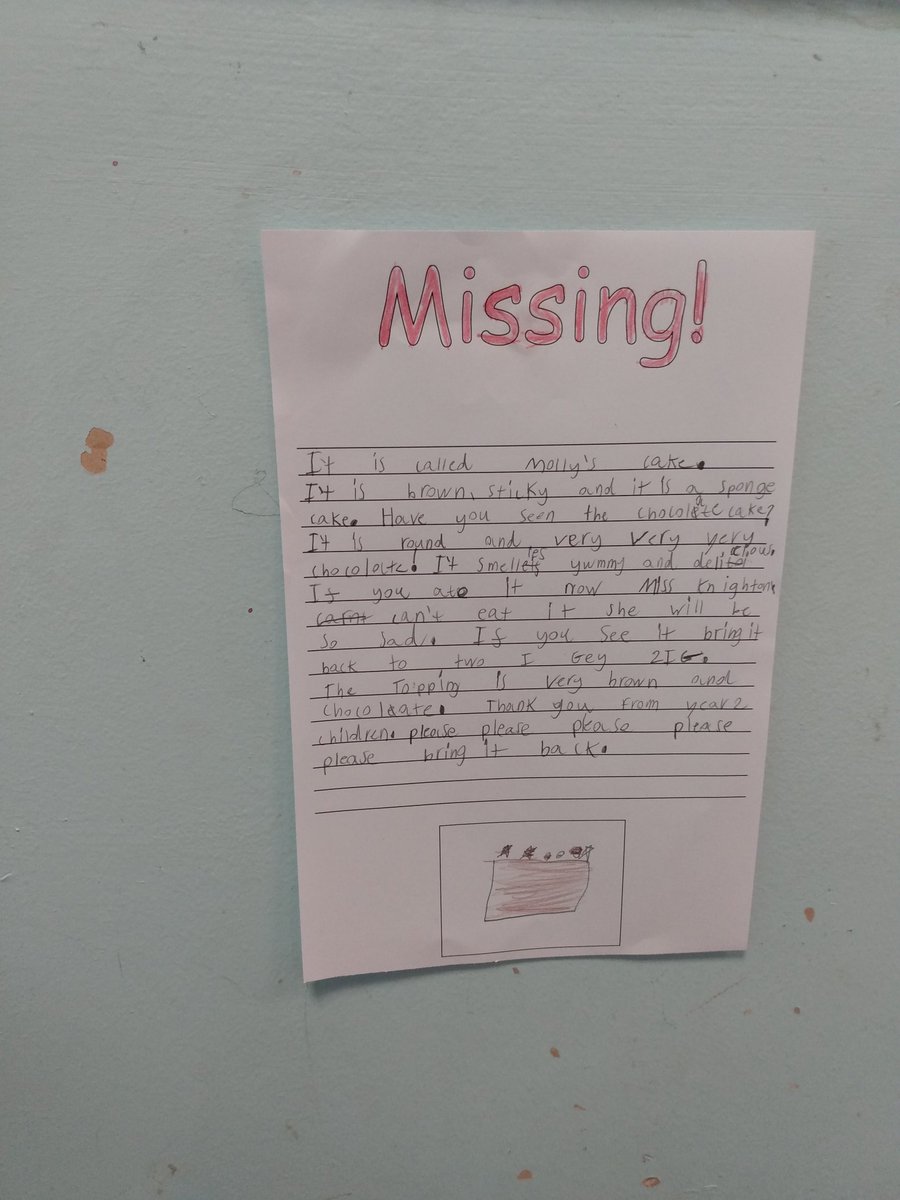 Missing!
It is called Molly's cake.
It is brown, sticky and it is a sponge
cake. Have you seen the chocolate cake?
It is round and very very very
chocolate! It smells yummy and delicious.
If you ate it now Miss Knighton
can't eat it she will be
so sad. If you see it bring it
back to two I Gey 2IG.
The Topping is very brown and
chocolate. Thank you from year 2
children. please please please please
please bring it back.